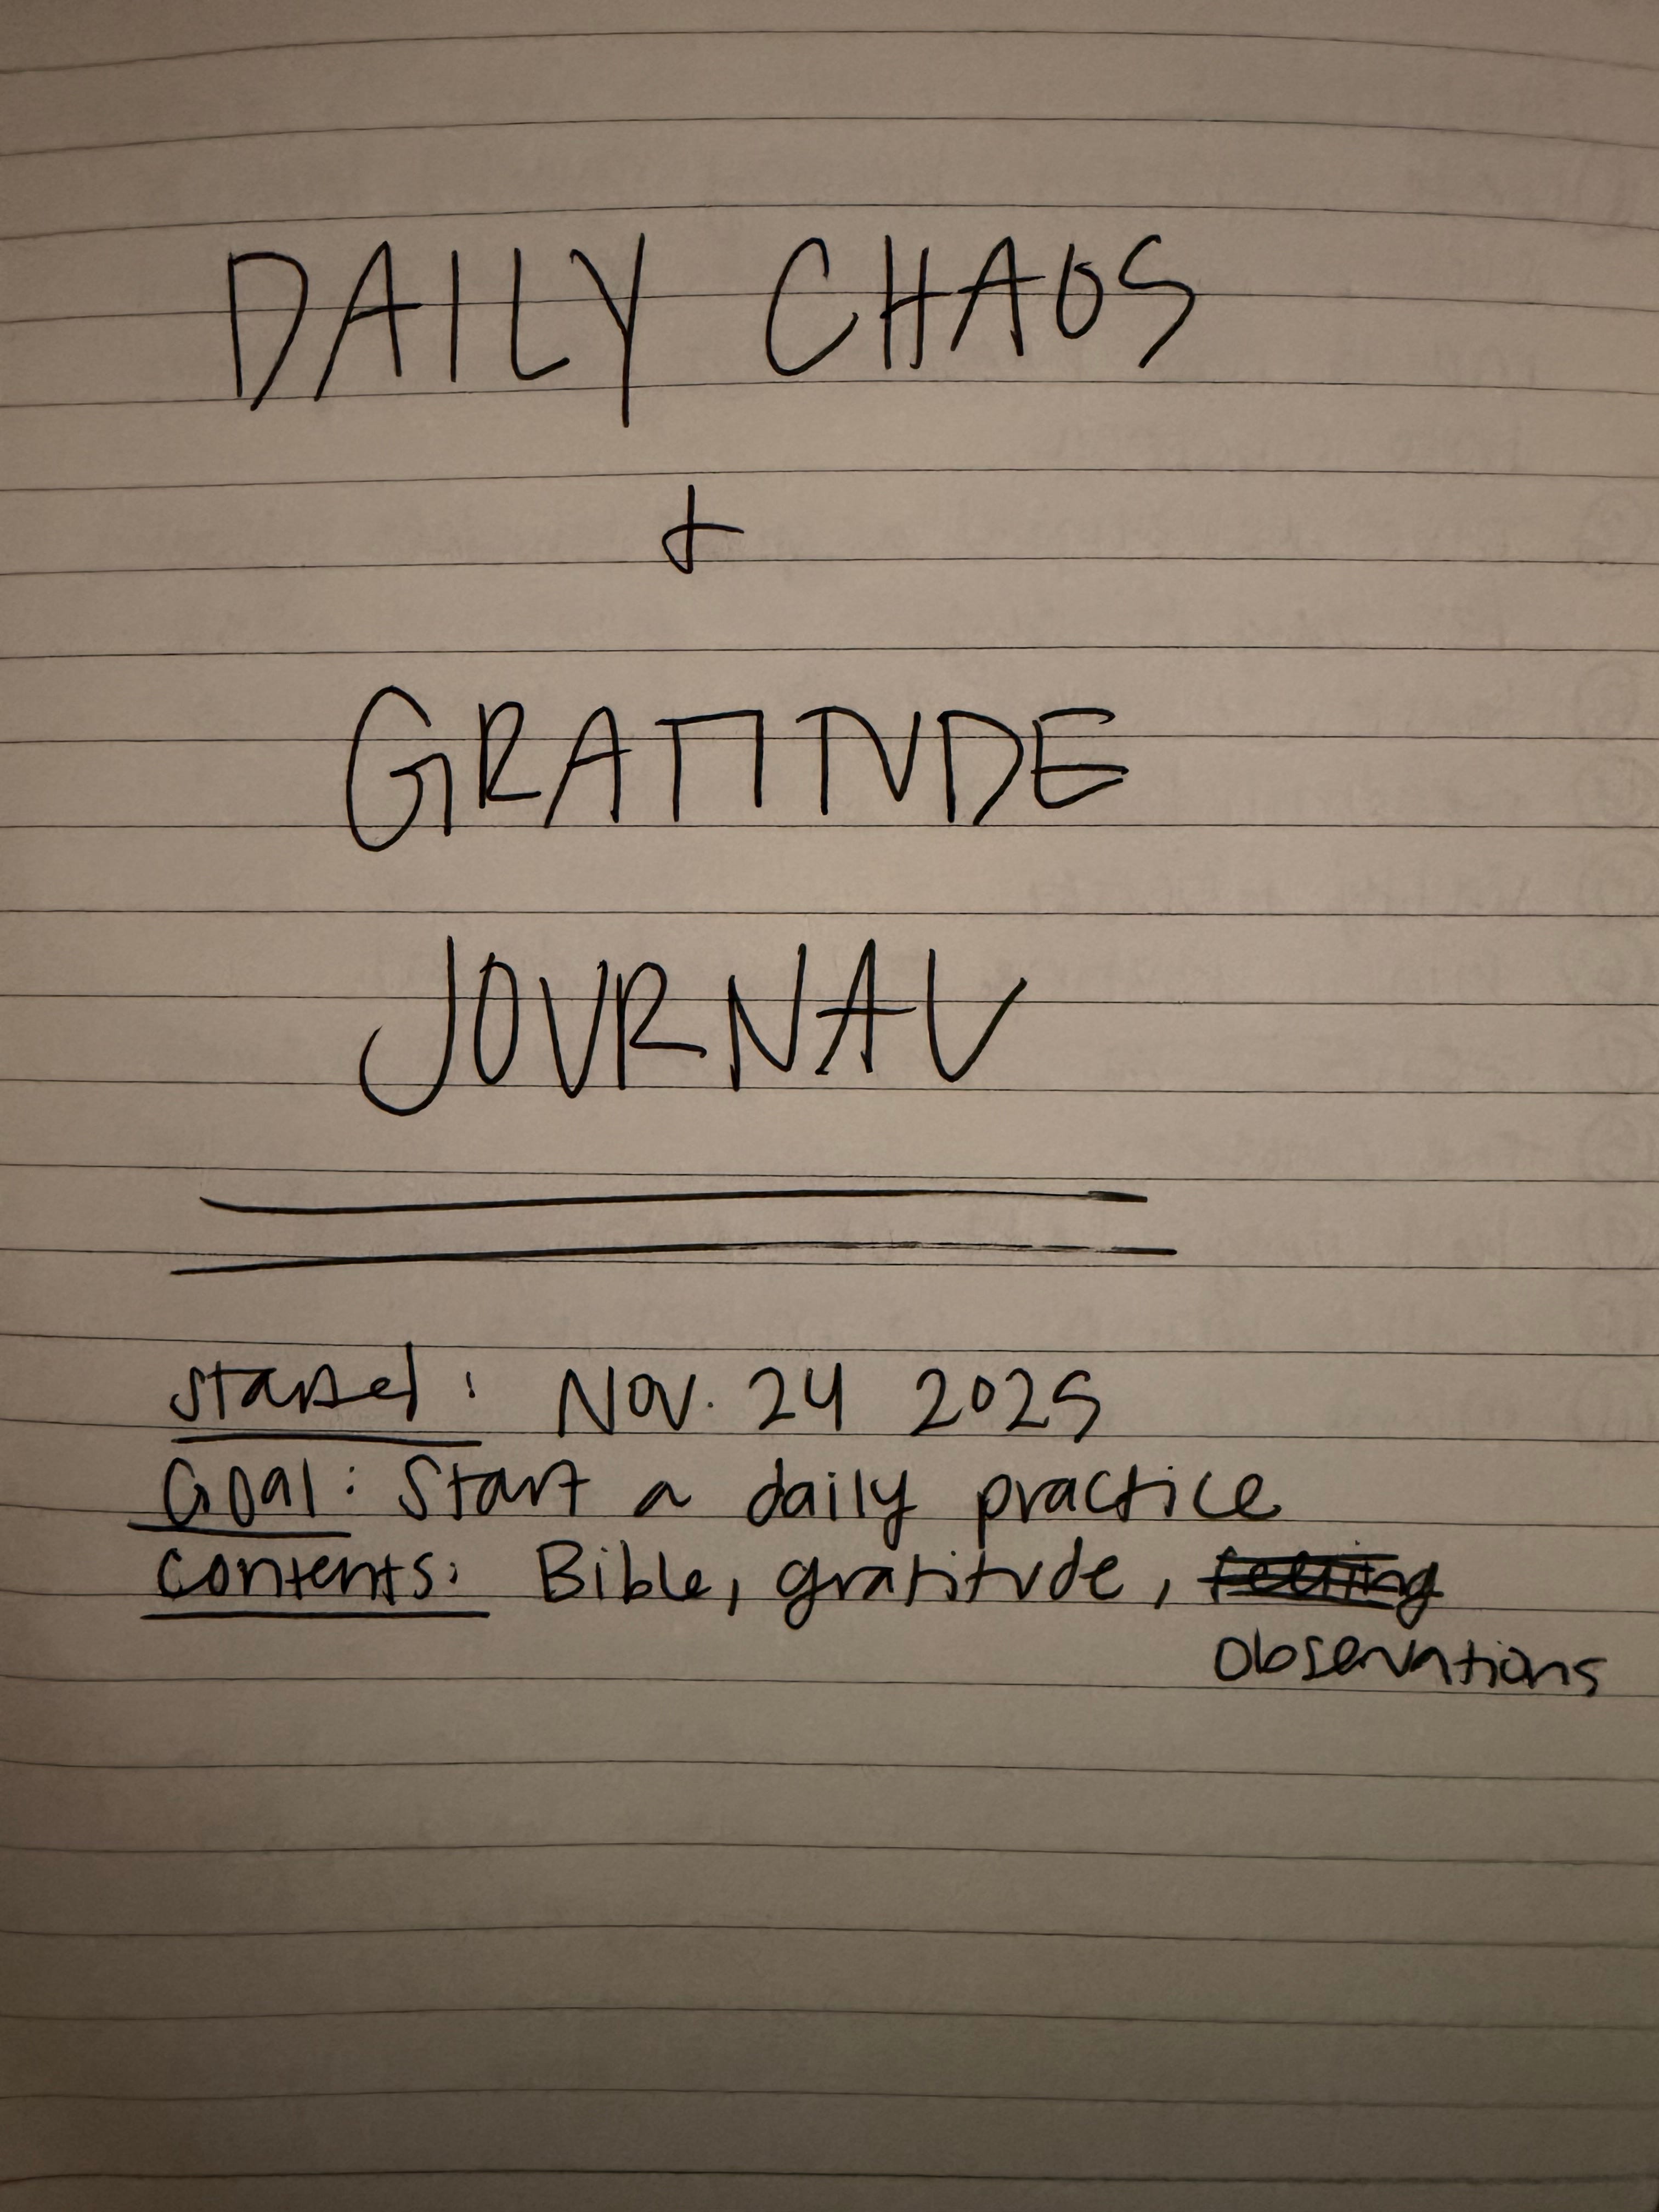 DAILY CHAOS
+
GRATITUDE
JOURNAL
Started: Nov. 24 2025
Goal: Start a daily practice
Contents: Bible, gratitude,
Observations